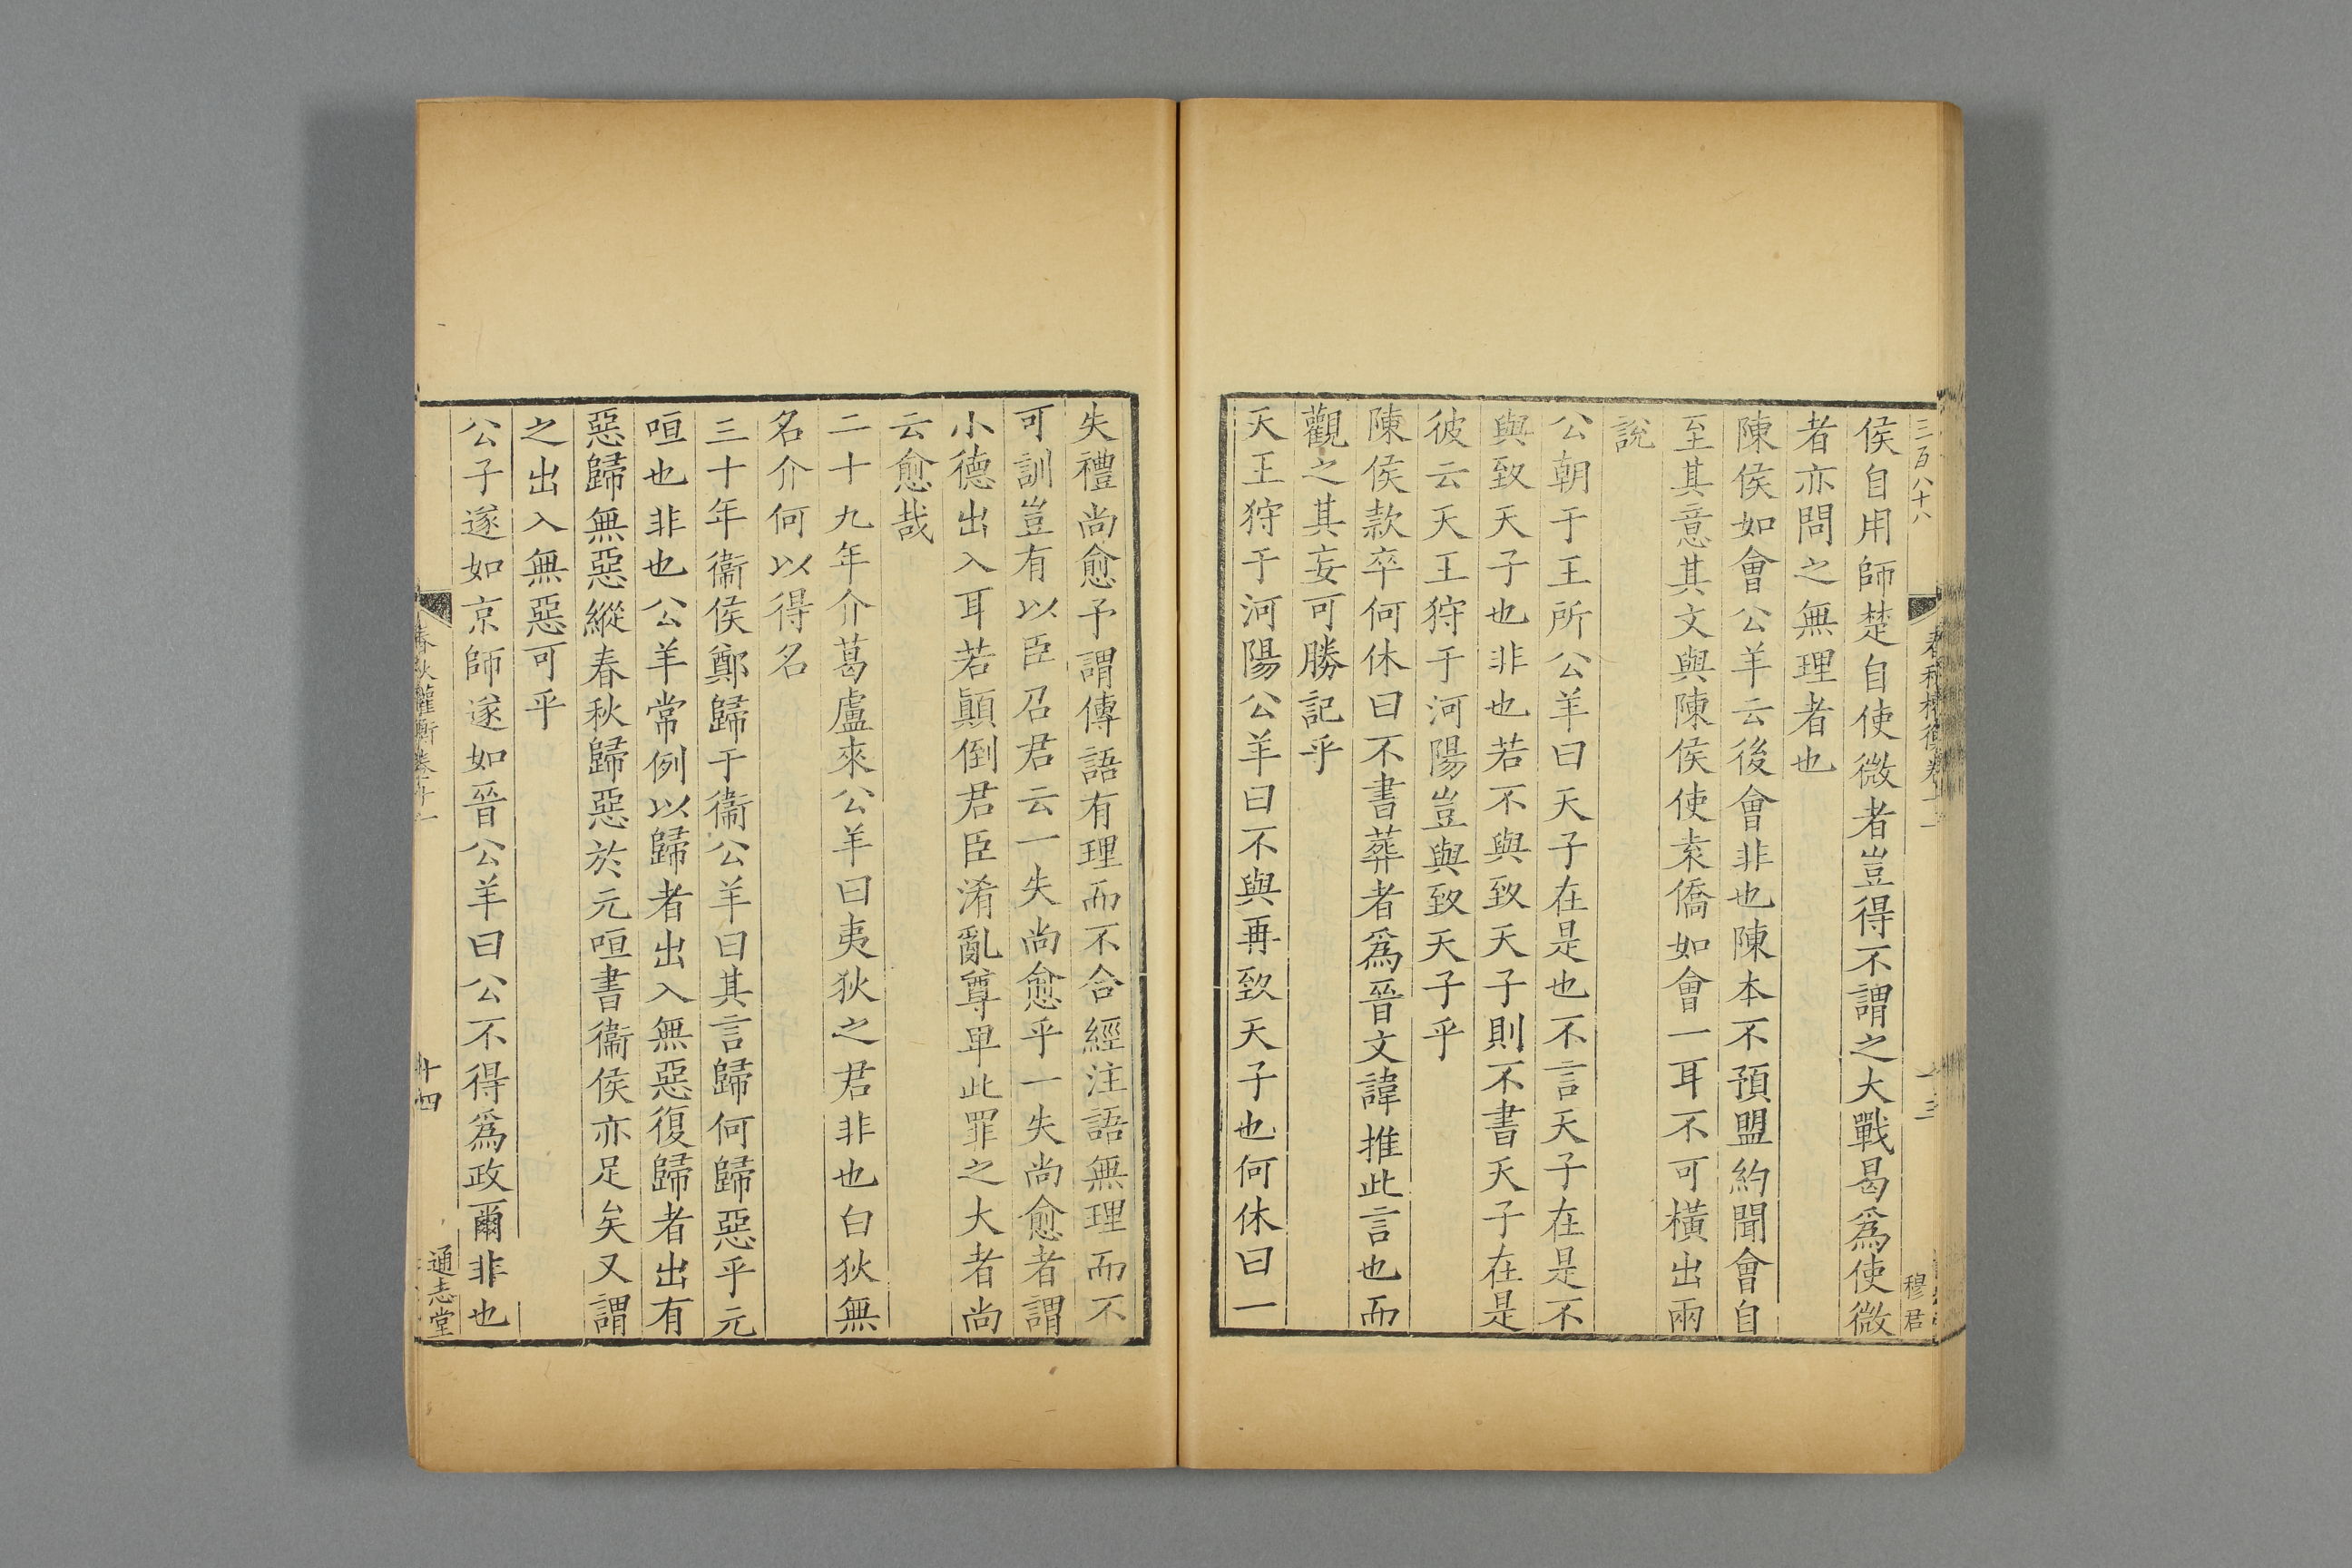 三百八十八
春秋權衡卷十一
十三
穆君
侯自用師楚自使微者豈得不謂之大戰曷爲使微
者亦問之無理者也
陳侯如會公羊云後會非也陳本不預盟約聞會自
至其意其文與陳侯使袁僑如會一耳不可橫出兩
說
公朝于王所公羊曰天子在是也不言天子在是不
與致天子也非也若不與致天子則不書天子在是
彼云天王狩于河陽豈與致天子乎
陳侯款卒何休曰不書葬者爲晉文諱推此言也而
觀之其妄可勝記乎
天王狩于河陽公羊曰不與再致天子也何休曰一
失禮尚愈予謂傳語有理而不合經注語無理而不
可訓豈有以臣召君云一失尚愈乎一失尚愈者謂
小德出入耳若顚倒君臣淆亂尊卑此罪之大者尚
云愈哉
二十九年介葛盧來公羊曰夷狄之君非也白狄無
名介何以得名
三十年衞侯鄭歸于衞公羊曰其言歸何歸惡乎元
咺也非也公羊常例以歸者出入無惡復歸者出有
惡歸無惡縱春秋歸惡於元咺書衞侯亦足矣又謂
之出入無惡可乎
公子遂如京師遂如晉公羊曰公不得爲政爾非也
春秋權衡卷十一
十四
通志堂